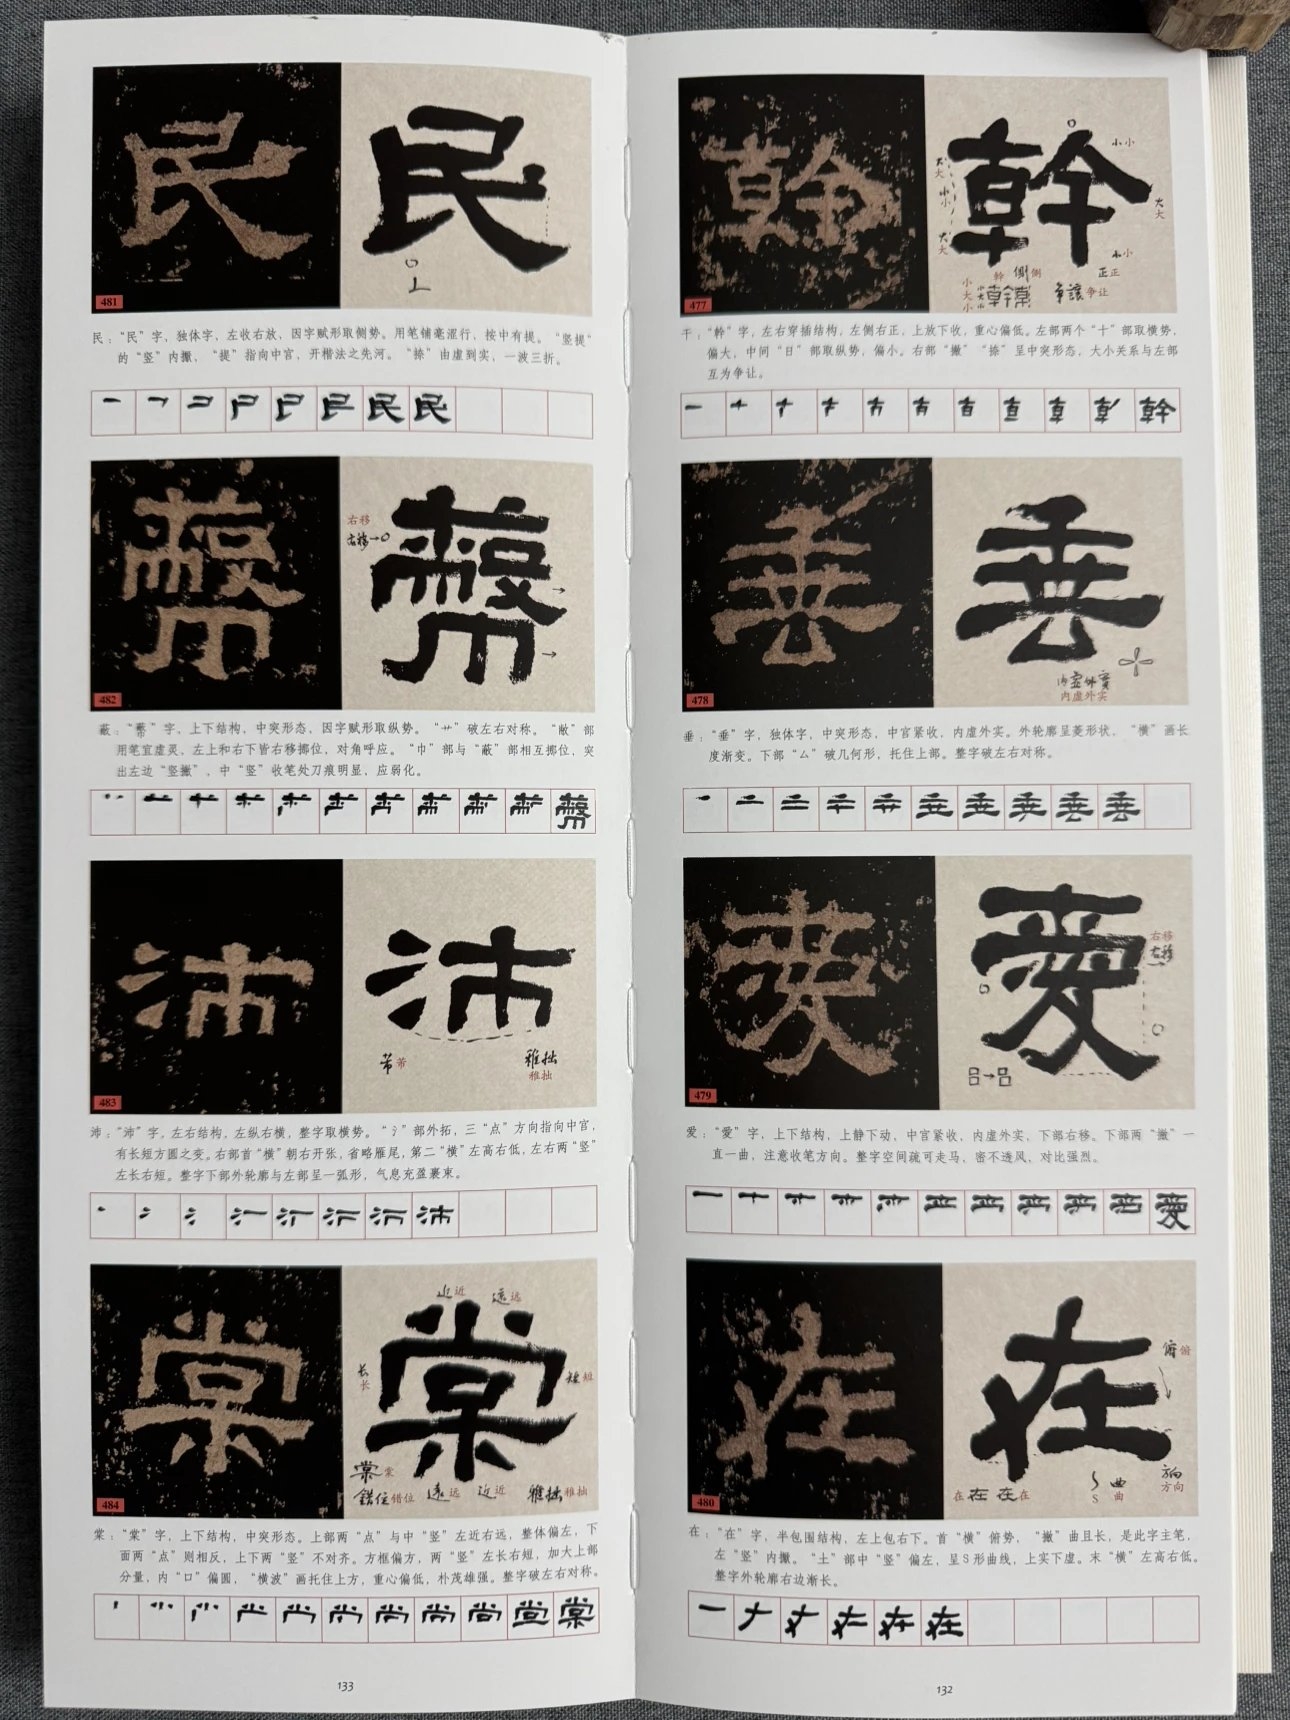 幹
小小
大大
小小
大大
大大
小小
正正
幹 側侧
小大小
爭讓争让
477
干：“幹”字，左右穿插结构，左侧右正，上放下收，重心偏低。左部两个“十”部取横势，
偏大，中间“日”部取纵势，偏小。右部“撇”“捺”呈中突形态，大小关系与左部
互为争让。
垂
内虚外實
内虚外实
478
垂：“垂”字，独体字，中突形态，中宫紧收，内虚外实。外轮廓呈菱形状，“横”画长
度渐变。下部“厶”破几何形，托住上部。整字破左右对称。
愛
右移
右移
479
爱：“愛”字，上下结构，上静下动，中宫紧收，内虚外实，下部右移。下部两“撇”一
直一曲，注意收笔方向。整字空间疏可走马，密不透风，对比强烈。
在
俯俯
在在在在
S
曲
曲
方向
方向
480
在：“在”字，半包围结构，左上包右下。首“横”俯势，“撇”曲且长，是此字主笔，
左“竖”内擫。“土”部中“竖”偏左，呈S形曲线，上实下虚。末“横”左高右低。
整字外轮廓右边渐长。
132
民
481
民：“民”字，独体字，左收右放，因字赋形取侧势。用笔铺毫涩行，按中有提。“竖提”
的“竖”内擫，“提”指向中宫，开楷法之先河。“捺”由虚到实，一波三折。
右移
右移→
482
蔽：“蔽”字，上下结构，中突形态，因字赋形取纵势。“艹”破左右对称。“敝”部
用笔宜虚灵，左上和右下皆右移挪位，对角呼应。“巾”部与“蔽”部相互挪位，突
出左边“竖撇”，中“竖”收笔处刀痕明显，应弱化。
沛
芾芾
稚拙
稚拙
483
沛：“沛”字，左右结构，左纵右横，整字取横势。“氵”部外拓，三“点”方向指向中宫，
有长短方圆之变。右部首“横”朝右开张，省略雁尾，第二“横”左高右低，左右两“竖”
左长右短。整字下部外轮廓与左部呈一弧形，气息充盈裹束。
棠
近近 遠远
长
长
短短
棠棠
錯位错位
遠远 近近 稚拙稚拙
484
棠：“棠”字，上下结构，中突形态。上部两“点”与中“竖”左近右远，整体偏左，下
面两“点”则相反，上下两“竖”不对齐。方框偏方，两“竖”左长右短，加大上部
分量，内“口”偏圆，“横波”画托住上方，重心偏低，朴茂雄强。整字破左右对称。
133